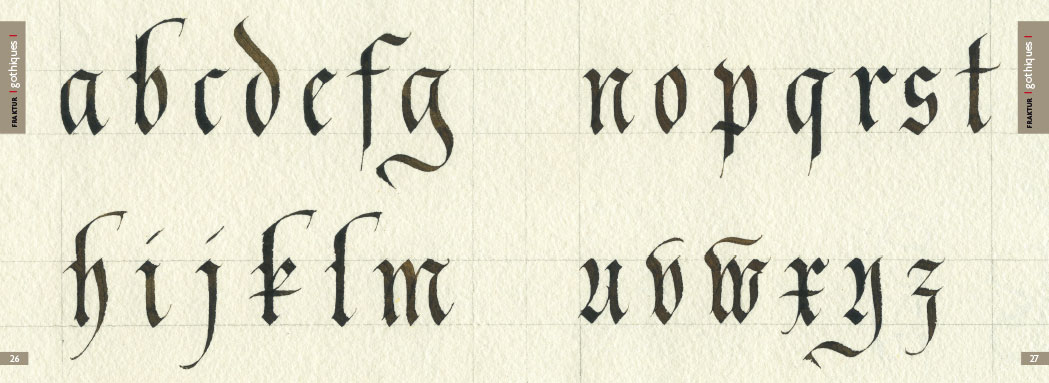 FRAKTUR | gothiques |
abcdefg
hijklm
26
nopqrst
uvwxyz
27
FRAKTUR | gothiques |